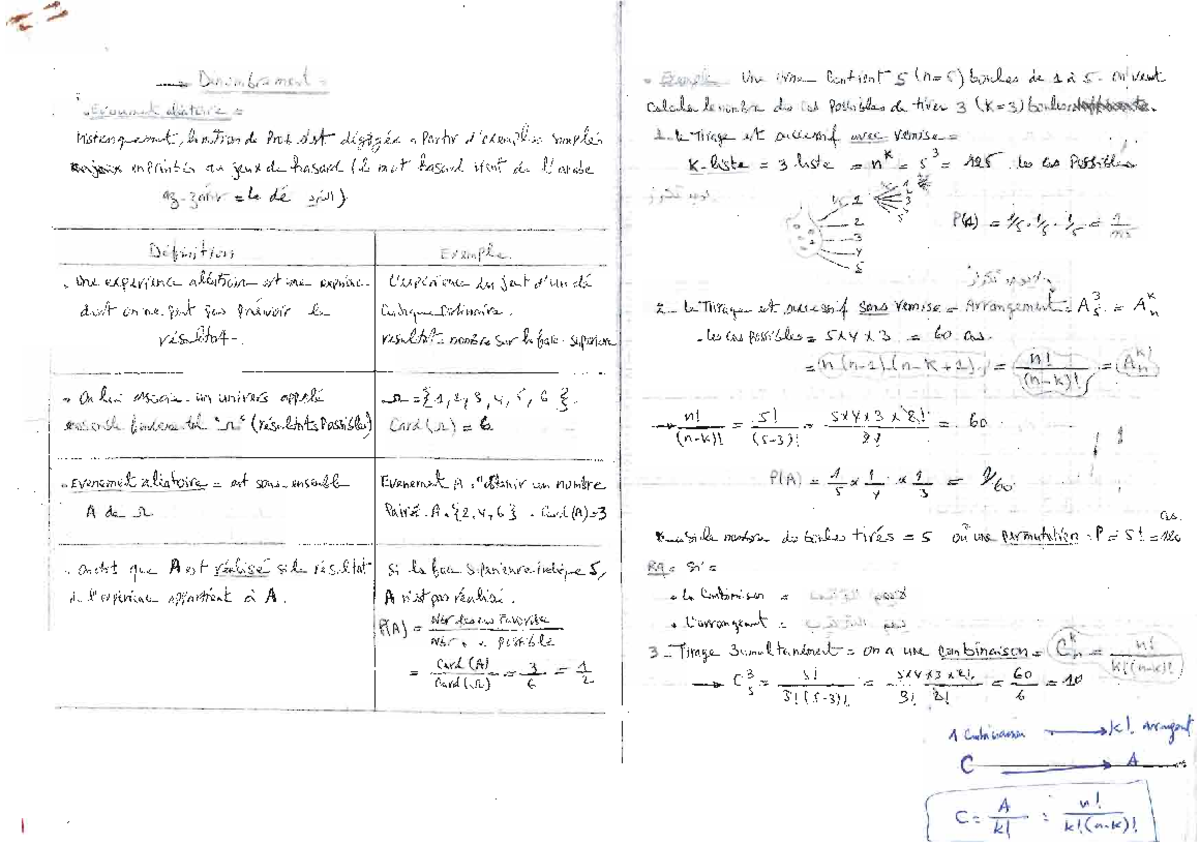 Dénombrement =
Evenement aléatoire =
Historiquement, la notion de Prob. s'est dégagée a partir d'exemples simples
empruntés au jeux de hasard (le mot hasard vient de l'arabe
az-zahr = le dé الزهر)
Définition
Exemple.
. Une expérience aléatoire est une expérience
dont on ne peut pas prévoir le
résultat.
L'expérience du jet d'un dé
cubique ordinaire.
résultat = nombre sur la face supérieure
. On lui associe un univers appelé
ensemble fondamental "Ω" (résultats Possibles)
Ω = {1, 2, 3, 4, 5, 6}.
Card(Ω) = 6
. Evenement aléatoire = est sous-ensemble
A de Ω
Evenement A = "obtenir un nombre
Pair". A = {2, 4, 6} . Card(A) = 3
. On dit que A est réalisé si le résultat
de l'expérience appartient à A.
Si la face supérieure indique 5,
A n'est pas réalisé.
P(A) = Nbr des cas Favorable / Nbr " " possible
= Card(A) / Card(Ω) = 3/6 = 1/2
. Exemple Une urne contient 5 (n=5) boules de 1 à 5. On veut
calculer le nombre des cas possibles de tirer 3 (K=3) boules
1- le Tirage est successif avec remise =
K-liste = 3 liste = n^k = 5^3 = 125 les cas Possibles
1/5 1
2
3
4
5
P(A) = 1/5 . 1/5 . 1/5 = 1/125
2- le Tirage est successif sans remise = Arrangement = A_5^3 = A_n^k
. les cas possibles = 5 x 4 x 3 = 60 cas.
= n (n-1) (n-k+1) = n! / (n-k)! = A_n^k
→ n! / (n-k)! = 5! / (5-3)! = 5x4x3x2! / 2! = 60
P(A) = 1/5 x 1/4 x 1/3 = 1/60
si le nombre de boules tirés = 5 on a une permutation : P = 5! = 120 cas.
Rq = Si =
. La Combinaison = لا يهم الترتيب
. L'arrangement = يهم الترتيب
3- Tirage Simultanément = on a une combinaison = C_n^k = n! / k!(n-k)!
→ C_5^3 = 5! / 3!(5-3)! = 5x4x3x2! / 3! 2! = 60/6 = 10
1 Combinaison → k! Arrangent
C → A
C = A / k! = n! / k!(n-k)!